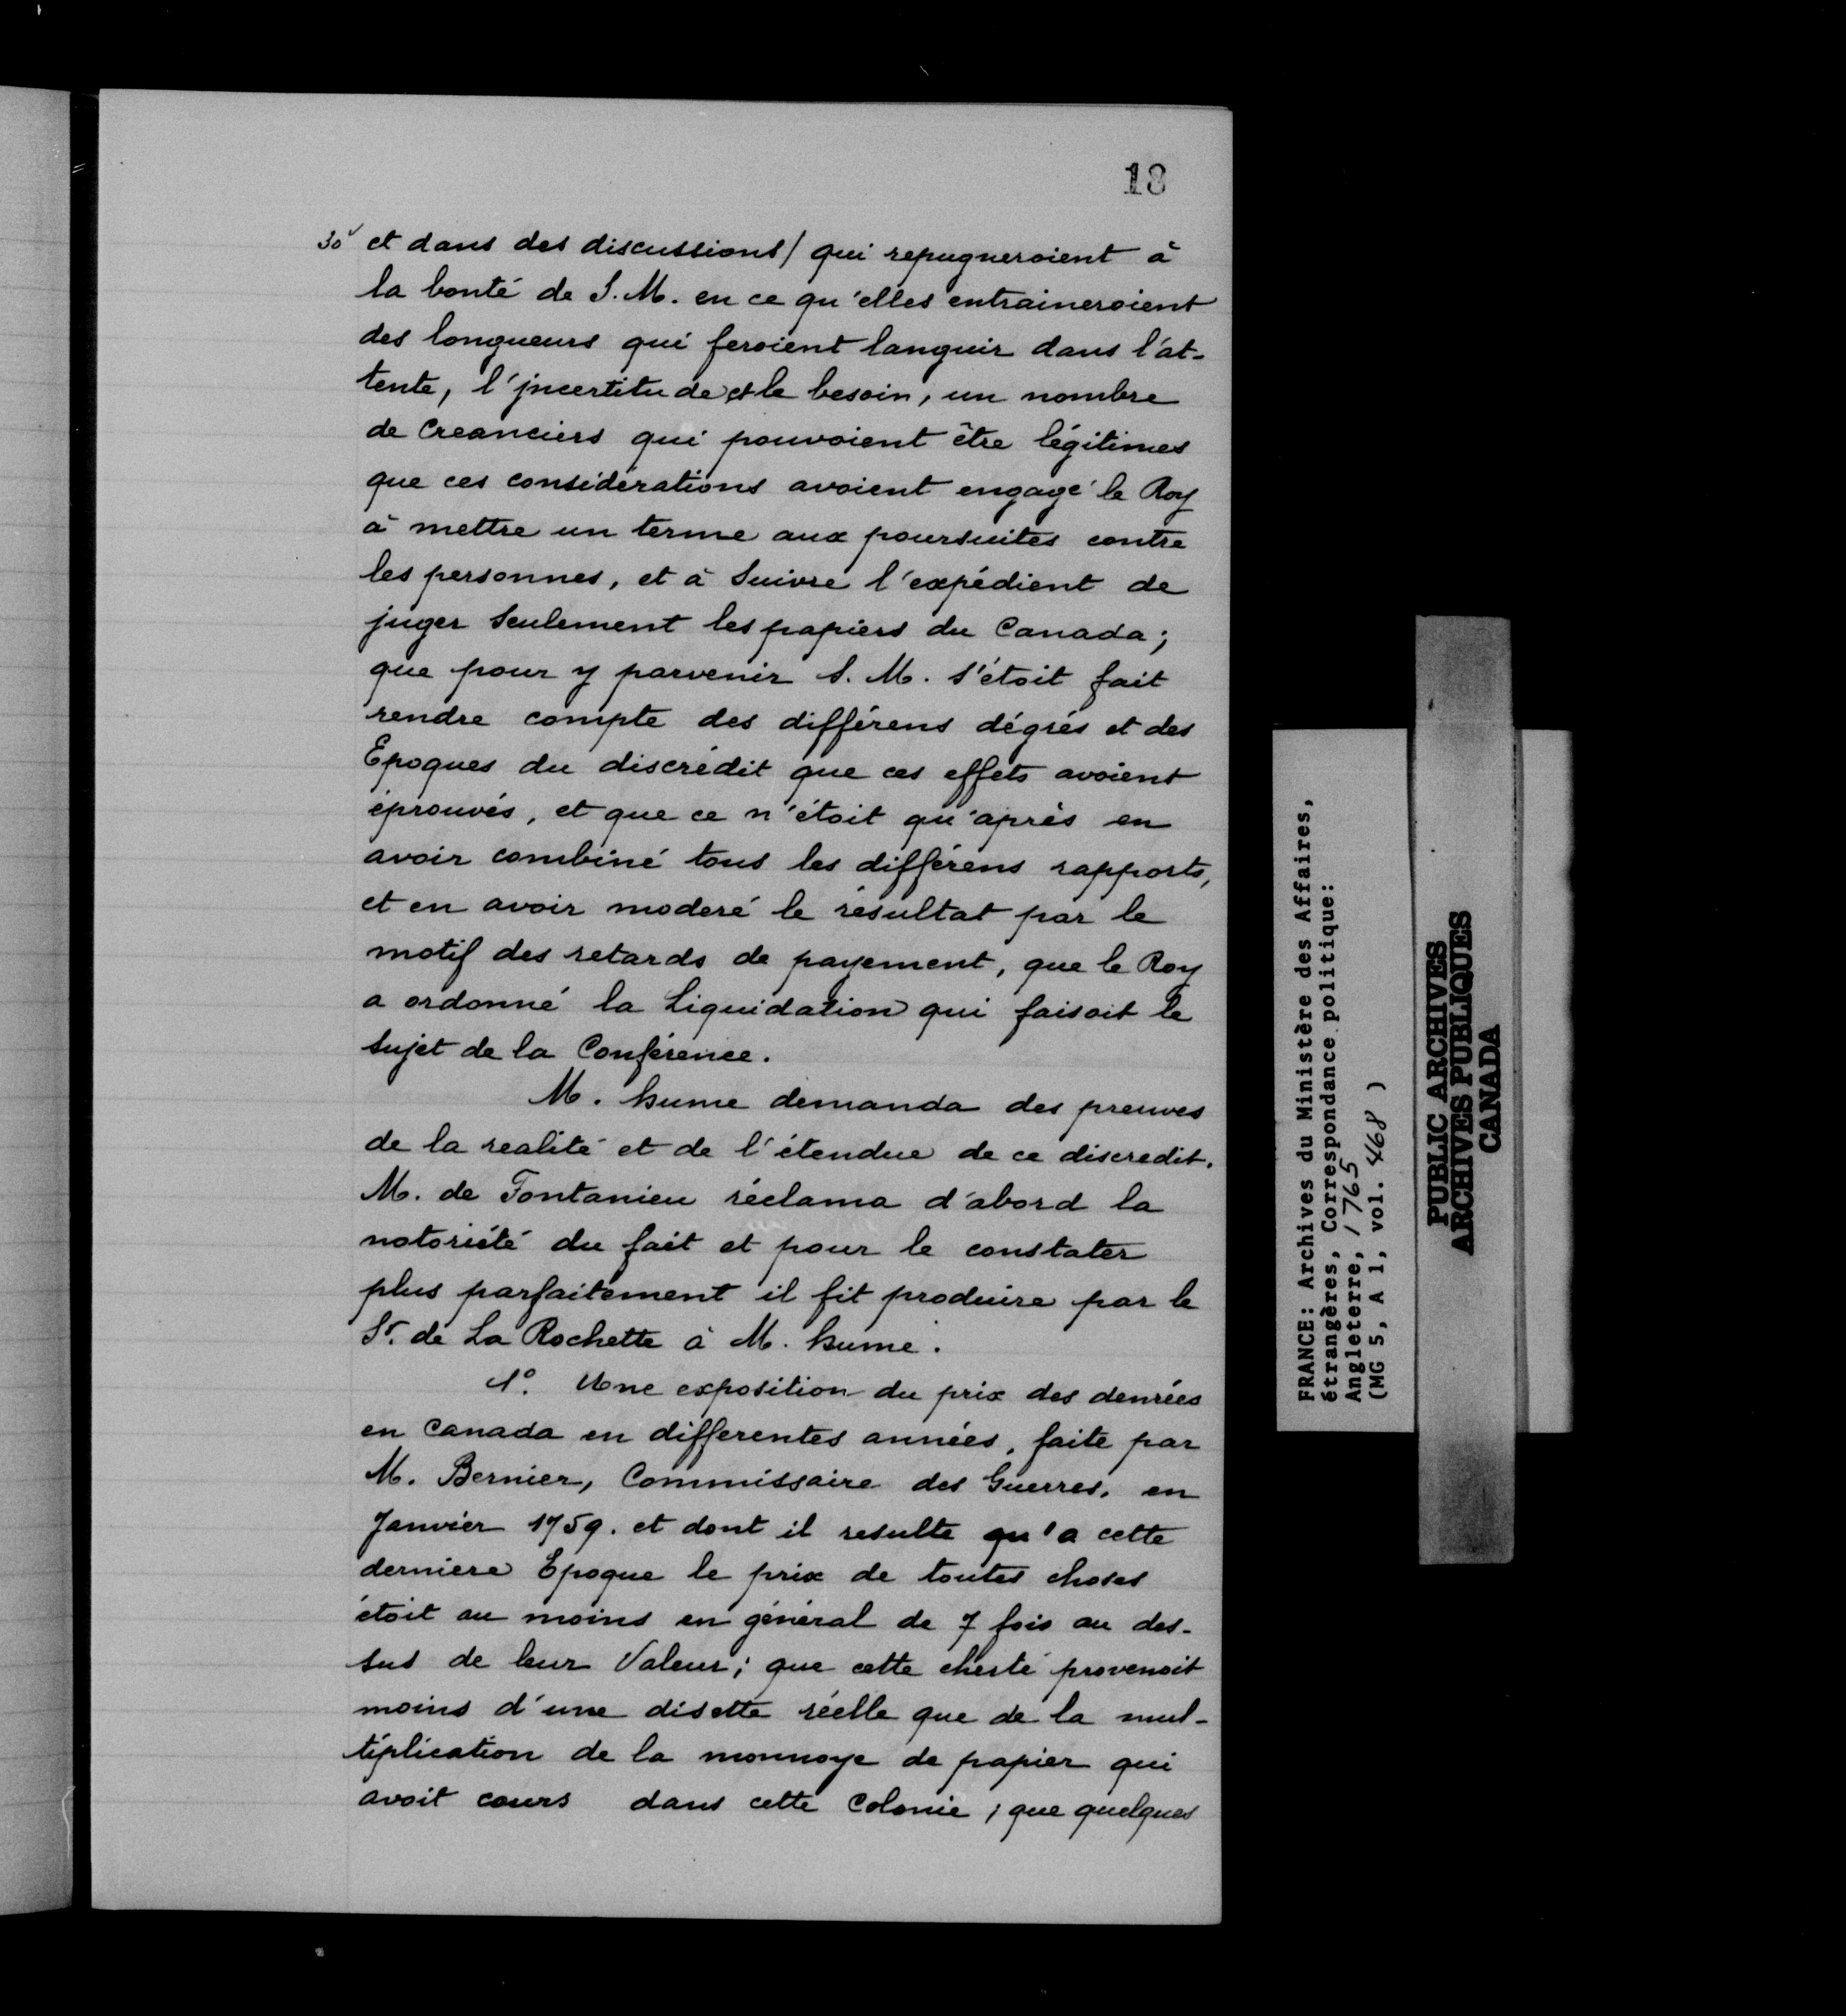 18
30v et dans des discussions/ qui repugneroient à
la bonté de S. M. en ce qu'elles entraineroient
des longueurs qui feroient languir dans l'at-
tente, l'jncertitude et le besoin, un nombre
de Creanciers qui pouvoient être légitimes
que ces considérations avoient engagé le Roy
à mettre un terme aux poursuites contre
les personnes, et à Suivre l'expédient de
juger Seulement les papiers du Canada;
que pour y parvenir S. M. s'étoit fait
rendre compte des différens dégrés et des
Epoques du discrédit que ces effets avoient
éprouvés, et que ce n'étoit qu'après en
avoir combiné tous les différens rapports,
et en avoir moderé le résultat par le
motif des retards de payement, que le Roy
a ordonné la Liquidation qui faisoit le
Sujet de la Conférence.
M. hume demanda des preuves
de la realité et de l'étendue de ce discredit.
M. de Fontanieu réclama d'abord la
notoriété du fait et pour le constater
plus parfaitement il fit produire par le
Sr. de La Rochette à M. hume.
1o. Une exposition du prix des denrées
en Canada en differentes années, faite par
M. Bernier, Commissaire des Guerres, en
Janvier 1759. et dont il resulte qu'a cette
derniere Epoque le prix de toutes choses
étoit au moins en général de 7 fois au des-
sus de leur Valeur; que cette cherté provenoit
moins d'une disette réelle que de la mul-
tiplication de la monnoye de papier qui
avoit cours dans cette Colonie; que quelques
FRANCE: Archives du Ministère des Affaires,
étrangères, Correspondance politique:
Angleterre, 1765
(MG 5, A 1, vol. 468 )
PUBLIC ARCHIVES
ARCHIVES PUBLIQUES
CANADA